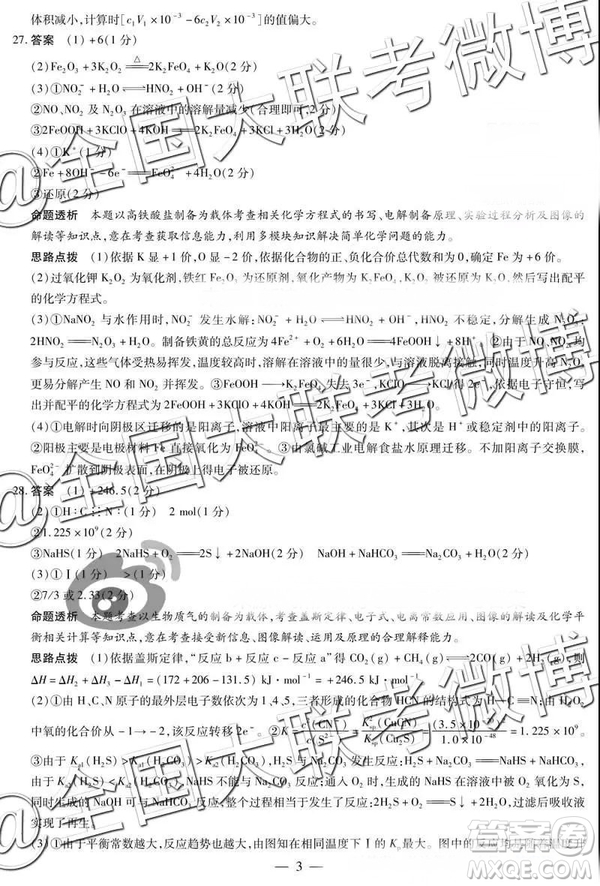 体积减小,计算时[c₁V₁×10⁻³-6c₂V₂×10⁻³]的值偏大。
27.答案 (1)+6(1分)
(2)Fe₂O₃+3K₂O₂ =△= 2K₂FeO₄+K₂O(2分)
(3)①NO₂⁻+H₂O⇌HNO₂+OH⁻(1分)
②NO、NO₂及N₂O₃在溶液中的溶解量减少(合理即可,2分)
③2FeOOH+3KClO+4KOH=2K₂FeO₄+3KCl+3H₂O(2分)
(4)①K⁺(1分)
②Fe+8OH⁻-6e⁻=FeO₄²⁻+4H₂O(2分)
③还原(2分)
命题透析 本题以高铁酸盐制备为载体考查相关化学方程式的书写、电解制备原理、实验过程分析及图像的
解读等知识点,意在考查获取信息能力,利用多模块知识解决简单化学问题的能力。
思路点拨 (1)依据K显+1价,O显-2价,依据化合物的正、负化合价总代数和为0,确定Fe为+6价。
(2)过氧化钾K₂O₂为氧化剂,铁红Fe₂O₃为还原剂,氧化产物为K₂FeO₄,K₂O₂被还原为K₂O,然后写出配平
的化学方程式。
(3)①NaNO₂与水作用时,NO₂⁻发生水解:NO₂⁻+H₂O⇌HNO₂+OH⁻,HNO₂不稳定,分解生成N₂O₃:
2HNO₂=N₂O₃+H₂O。制备铁黄的总反应为4Fe²⁺+O₂+6H₂O=4FeOOH↓+8H⁺。②由于NO、NO₂均
参与反应,这些气体受热易挥发,温度较高时,溶解在溶液中的量很少,与溶液脱离接触,同时温度升高N₂O₃
更易分解产生NO和NO₂。③FeOOH→K₂FeO₄失去3e⁻,KClO→KCl得2e⁻。依据电子守恒,写出
配平的化学方程式为2FeOOH+3KClO+4KOH=2K₂FeO₄+3KCl+3H₂O。
(4)①电解时向阴极区迁移的是阳离子,溶液中阳离子最主要的是K⁺,其次是H⁺或稳定剂中的阳离子。
②阳极主要是电极材料Fe直接氧化为FeO₄²⁻。③由氯碱工业电解食盐水原理迁移。不加阳离子交换膜,
FeO₄²⁻扩散到阴极表面,在阴极上得电子被还原。
28.答案 (1)+246.5(2分)
(2)①H:C⋮⋮N:(1分) 2 mol(1分)
②1.225×10⁹(2分)
③NaHS(1分) 2NaHS+O₂=2S↓+2NaOH(2分) NaOH+NaHCO₃=Na₂CO₃+H₂O(2分)
(3)①Ⅰ(2分)
②7/3或2.33(2分)
命题透析 本题考查以生物质气的制备为载体,考查盖斯定律、电子式、电离常数应用、图像的解读及化学平
衡相关计算等知识点,意在考查接受新信息、图像解读、运用及原理的合理解释能力。
思路点拨 (1)依据盖斯定律,“反应b+反应c-反应a”得CO₂(g)+CH₄(g)⇌2CO(g)+2H₂(g),则
ΔH=ΔH₂+ΔH₃-ΔH₁=(172+206-131.5)kJ·mol⁻¹=+246.5kJ·mol⁻¹。
(2)①由H、C、N原子的最外层电子数依次为1、4、5,三者形成的化合物HCN的结构式为H—C≡N;由H₂O₂
中氧的化合价从-1→-2,该反应转移2e⁻。
1.225×10⁹。
③由于
的
同时生成的NaOH可与NaHCO₃反应生成Na₂CO₃,整个过程相当于
实现了再生。
(3)①由于平衡常数越大,反应趋势也越大,由图知在相同温度下Ⅰ的Kₚ最大。
— 3 —
@全国大联考微博
答案圈
MXQE.COM